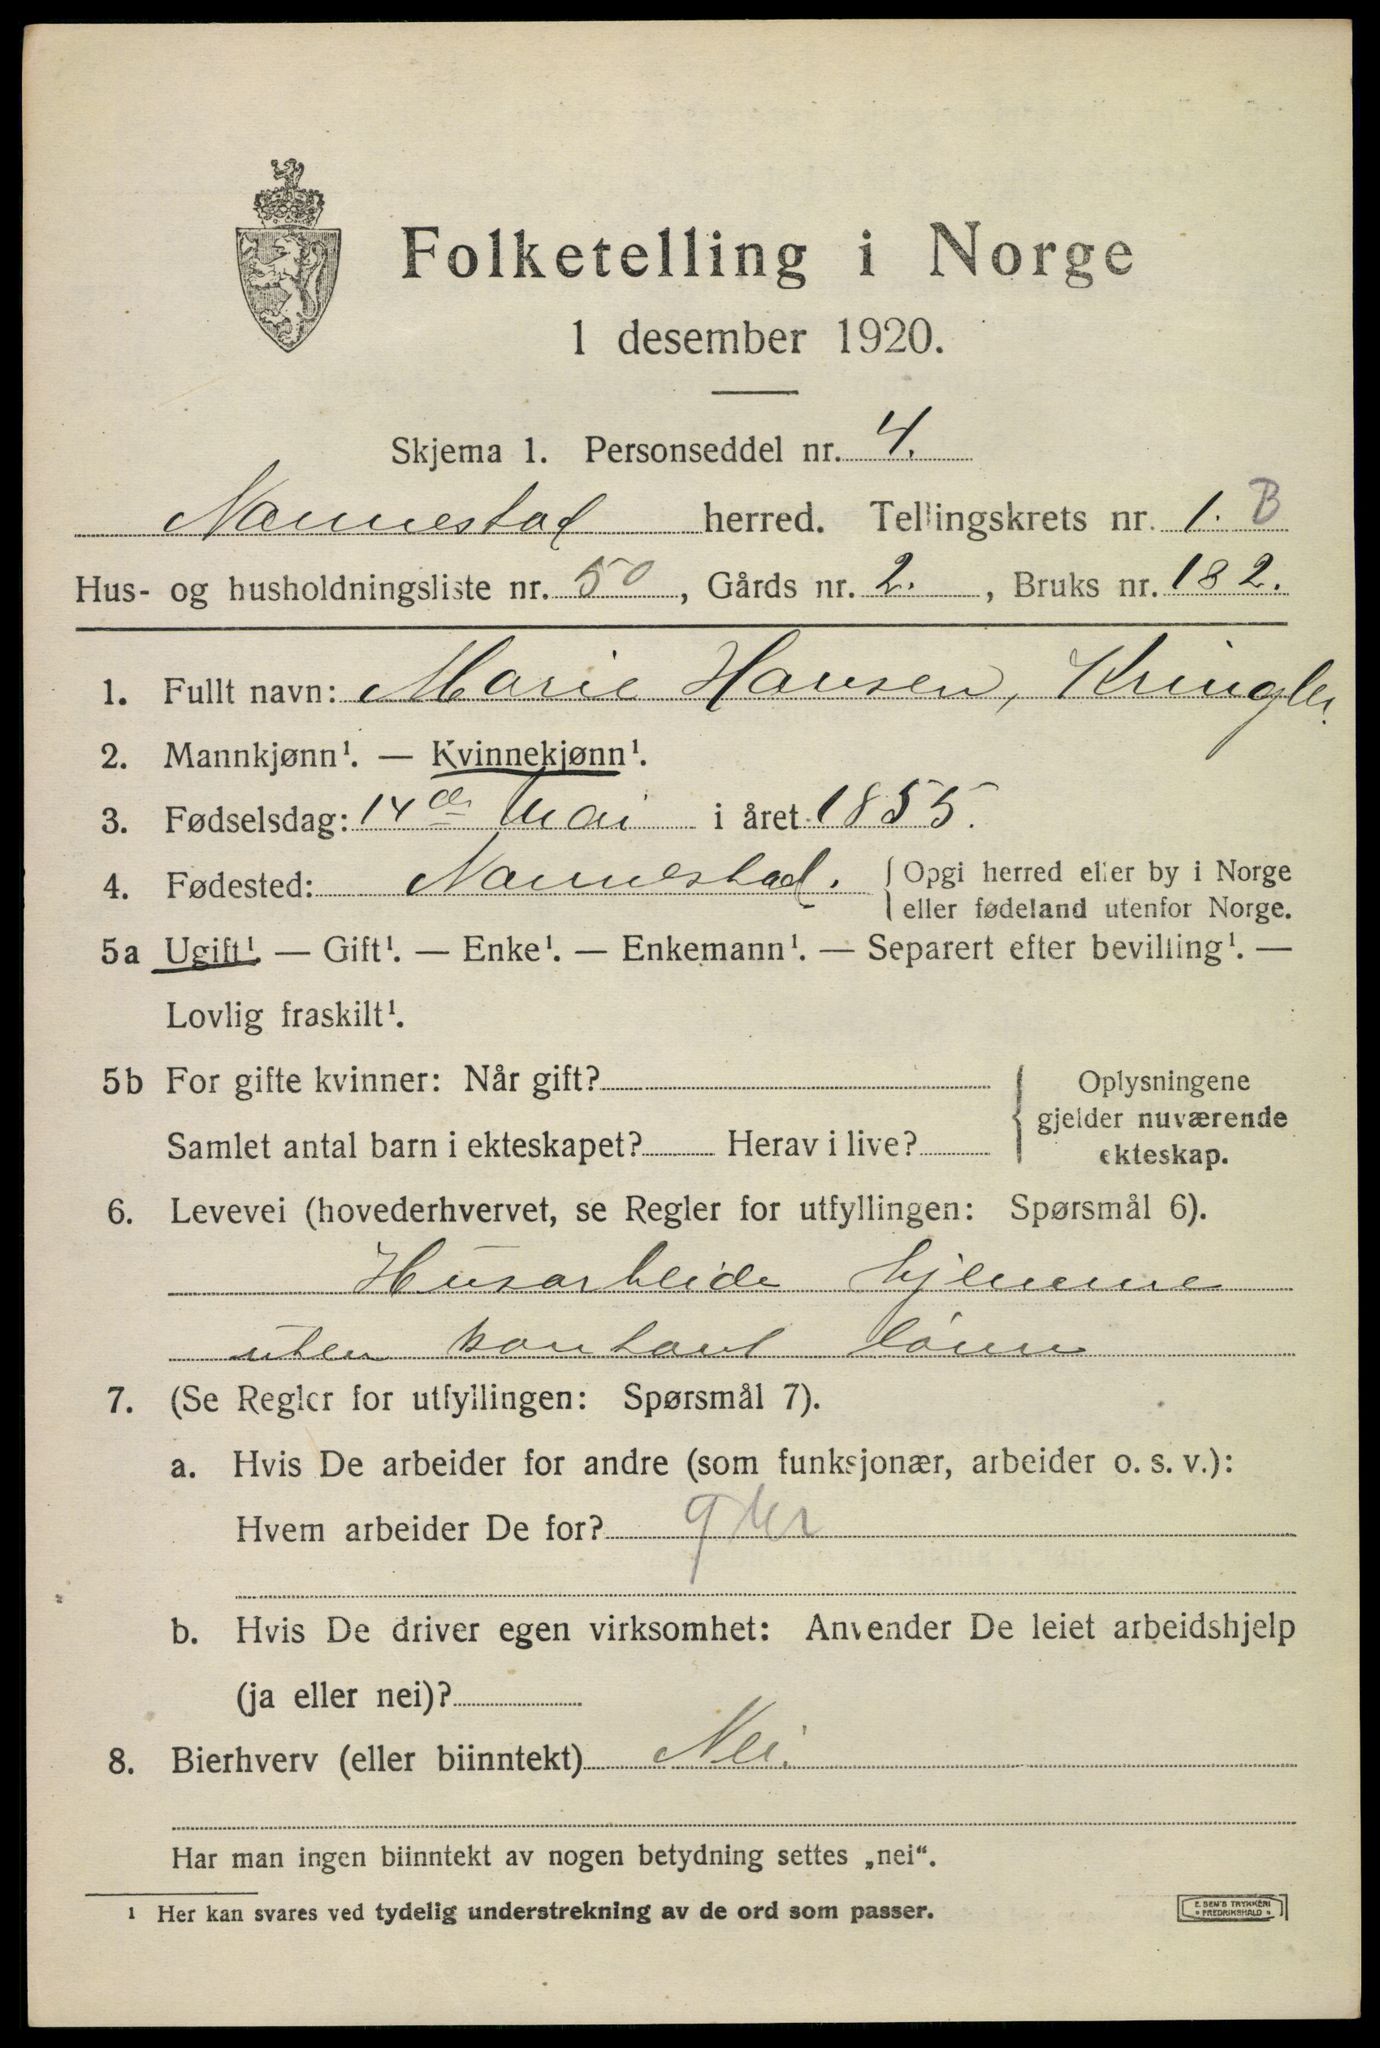 Folketelling i Norge
1 desember 1920.
Skjema 1. Personseddel nr. 4.
Nannestad herred. Tellingskrets nr. 1. B
Hus- og husholdningsliste nr. 50, Gårds nr. 2., Bruks nr. 182.
1. Fullt navn: Marie Hansen, Kringler
2. Mannkjønn¹. — Kvinnekjønn¹.
3. Fødselsdag: 14de Mai i året 1855.
4. Fødested: Nannestad. { Opgi herred eller by i Norge
eller fødeland utenfor Norge.
5a Ugift¹. — Gift¹. — Enke¹. — Enkemann¹. — Separert efter bevilling¹. —
Lovlig fraskilt¹.
5b For gifte kvinner: Når gift? { Oplysningene
gjelder nuværende
Samlet antal barn i ekteskapet? Herav i live? ekteskap.
6. Levevei (hovederhvervet, se Regler for utfyllingen: Spørsmål 6).
Husarbeide hjemme
uten kontant lönn
7. (Se Regler for utfyllingen: Spørsmål 7).
a. Hvis De arbeider for andre (som funksjonær, arbeider o. s. v.):
Hvem arbeider De for?
b. Hvis De driver egen virksomhet: Anvender De leiet arbeidshjelp
(ja eller nei)?
8. Bierhverv (eller biinntekt) Nei.
Har man ingen biinntekt av nogen betydning settes „nei“.
¹ Her kan svares ved tydelig understrekning av de ord som passer.
E. SEM'S TRYKKERI
FREDRIKSHALD